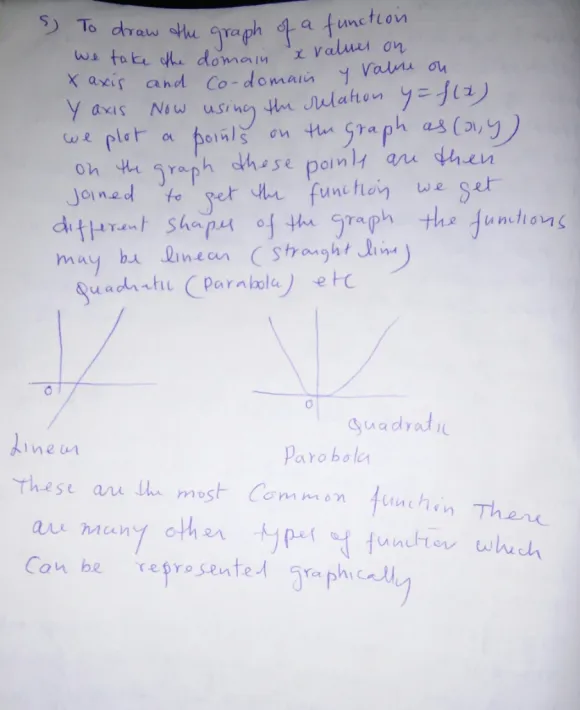 5) To draw the graph of a function
we take the domain x values on
X axis and Co-domain y value on
Y axis Now using the relation y = f(x)
we plot a points on the graph as (x, y)
on the graph these points are then
joined to get the function we get
different shapes of the graph the functions
may be linear (straight line)
Quadratic (Parabola) etc
0
0
Quadratic
Linear
Parabola
These are the most Common function There
are many other types of function which
Can be represented graphically